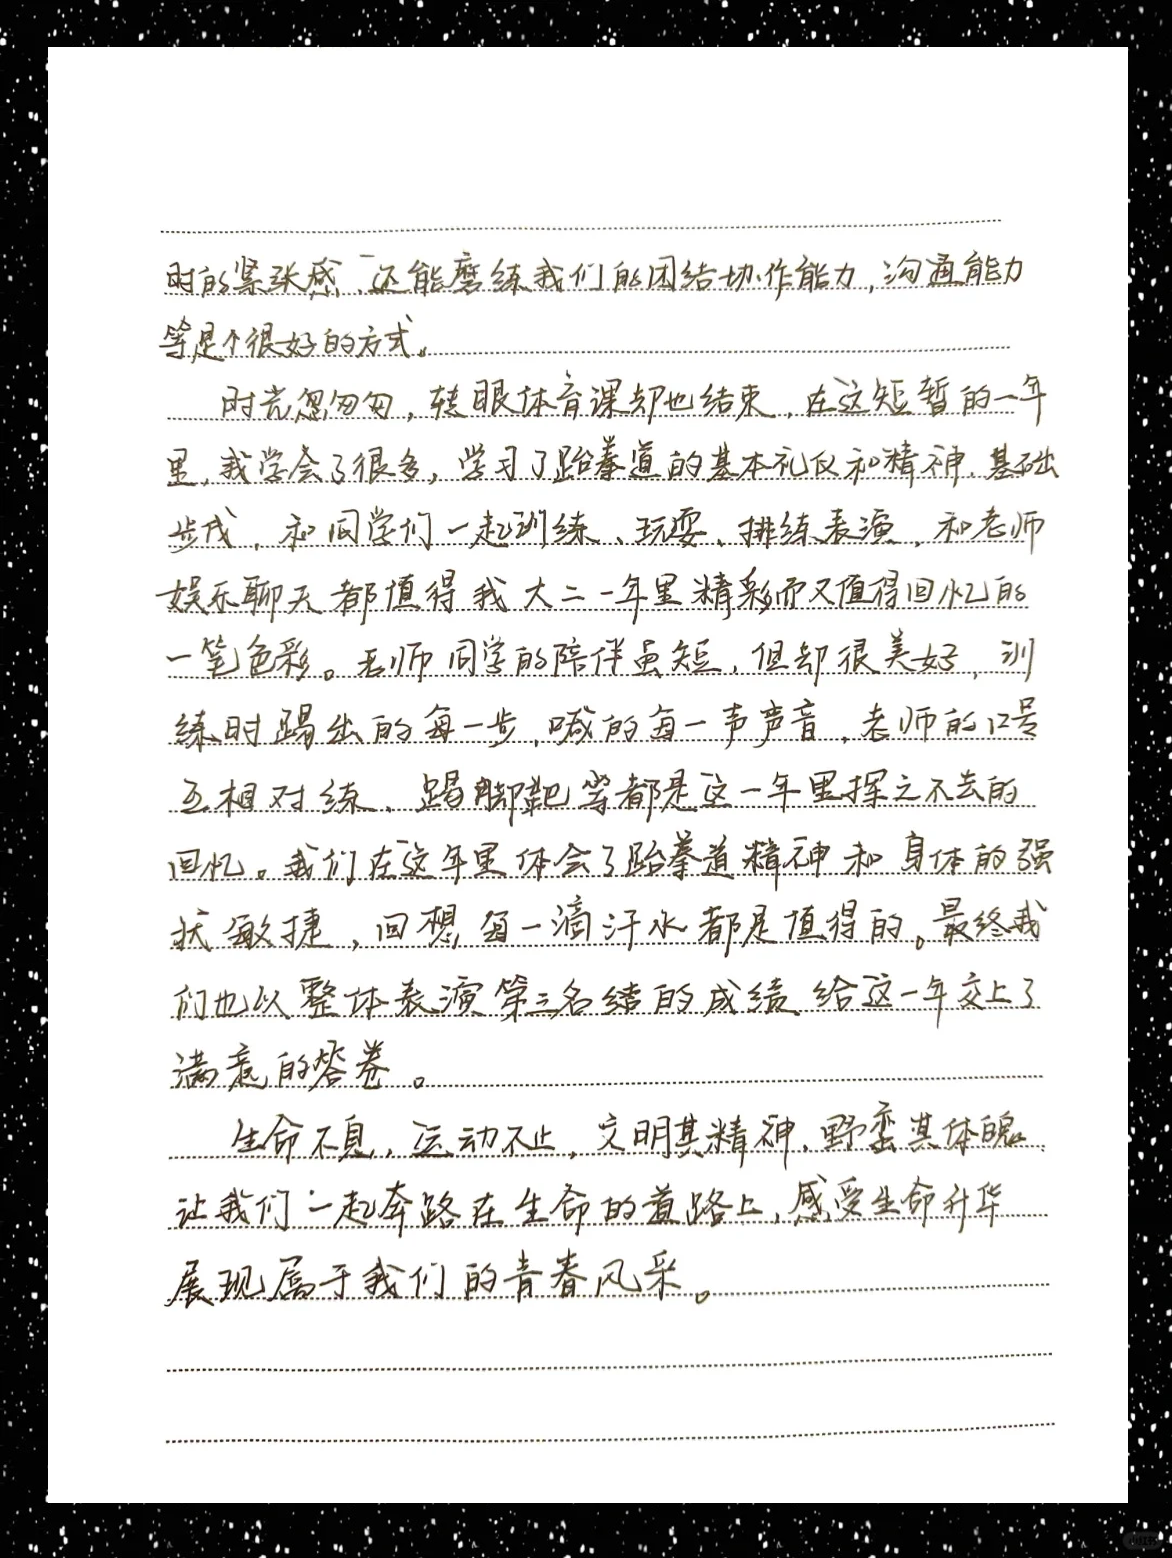 时的紧张感，还能磨练我们的团结协作能力，沟通能力
等是个很好的方式。
时光忽匆匆，转眼体育课却也结束，在这短暂的一年
里，我学会了很多，学习了跆拳道的基本礼仪和精神，基础
步伐，和同学们一起训练、玩耍、排练表演，和老师
娱乐聊天都值得我大二一年里精彩而又值得回忆的
一笔色彩。老师同学的陪伴虽短，但却很美好，训
练时踢出的每一步，喊的每一声声音，老师的口号
互相对练，踢脚靶等都是这一年里挥之不去的
回忆。我们在这年里体会了跆拳道精神和身体的强
状敏捷，回想每一滴汗水都是值得的。最终我
们也以整体表演第三名结的成绩给这一年交上了
满意的答卷。
生命不息，运动不止，文明其精神，野蛮其体魄，
让我们一起奔路在生命的道路上，感受生命升华
展现属于我们的青春风采。